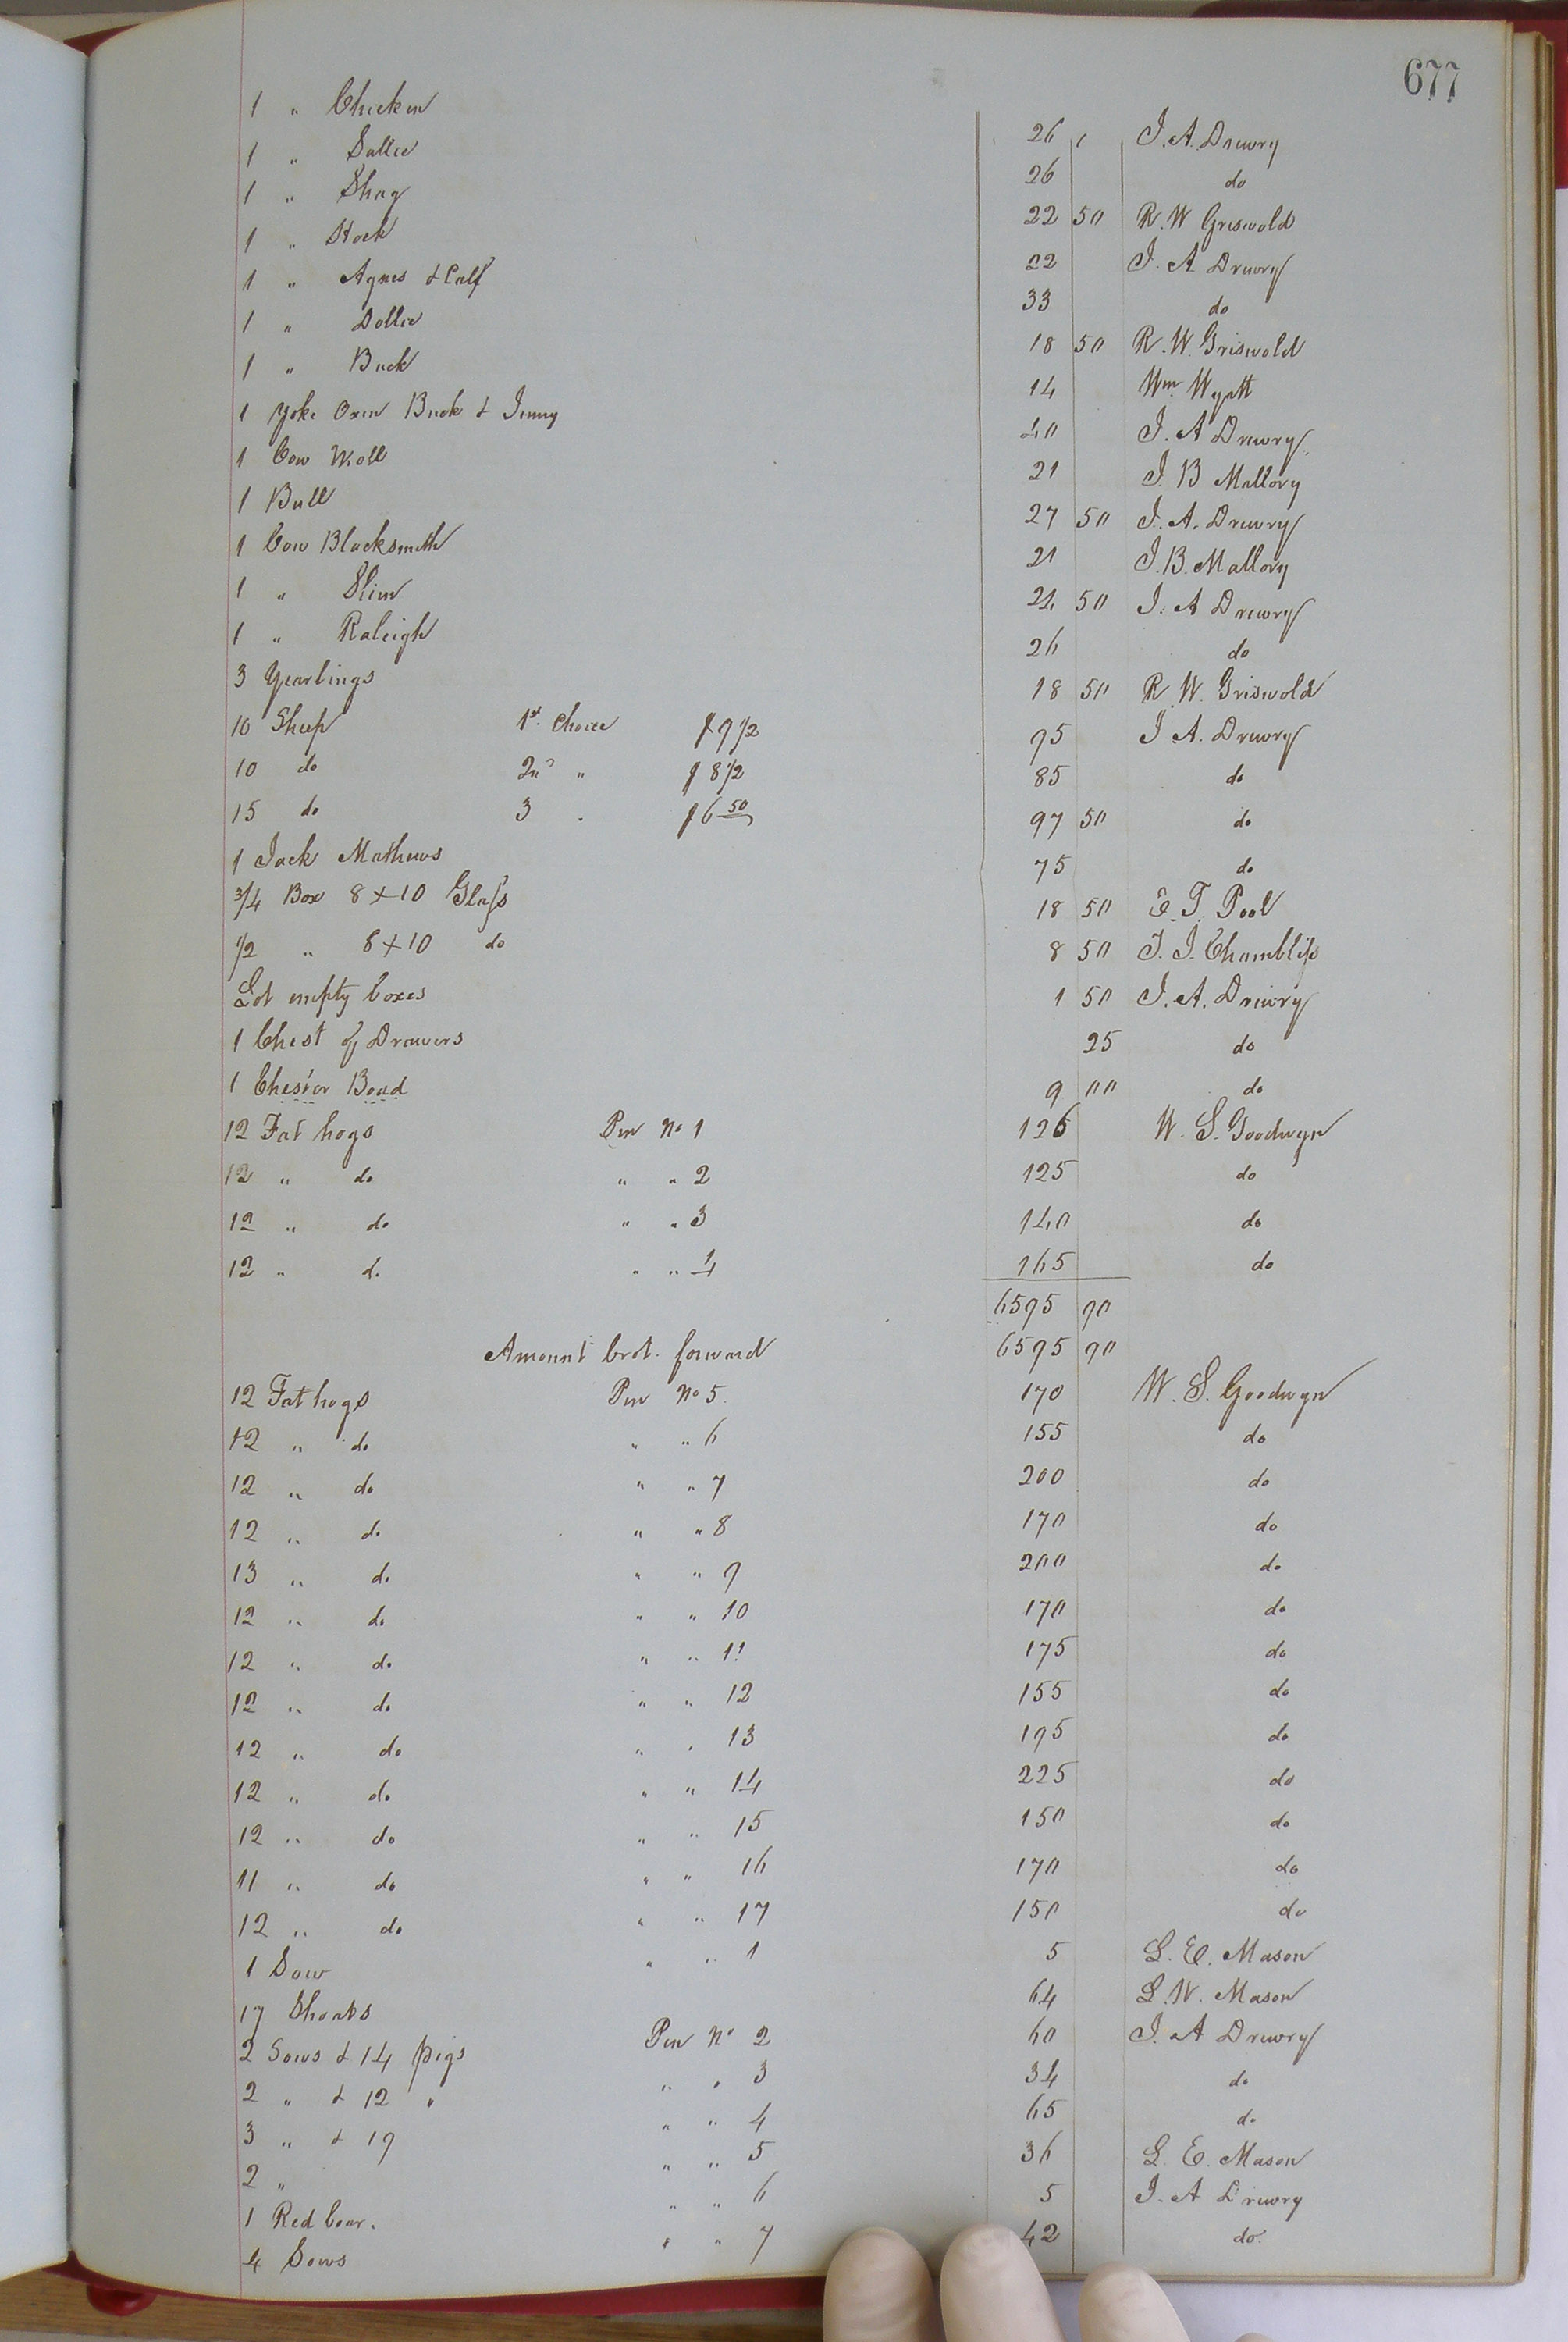 677
1 " Chicken 26 , J. A. Drewry
1 " Sallie 26 do
1 " Shag 22 50 R. W Griswold
1 " Stock 22 J. A Drewry
1 " Agnes & Calf 33 do
1 " Dollie 18 50 R. W. Griswold
1 " Buck 14 Wm. Wyatt
1 Yoke Oxen Buck & Jenny 40 J. A Drewry
1 Cow Moll 21 J. B Mallory
1 Bull 27 50 J. A. Drewry
1 Cow Blacksmith 21 J. B. Mallory
1 " Slim 24 50 J. A Drewry
1 " Raleigh 26 do
3 Yearlings 18 50 R. W. Griswold
10 Sheep 1st. Choice $9 1/2 95 J A. Drewry
10 do 2nd " $8 1/2 85 do
15 do 3 " $6 50 97 50 do
1 Jack Mathews 75 do
3/4 Box 8 x 10 Glass 18 50 E. T. Pool
1/2 " 8 x 10 do 8 50 J. J. Chambliss
Lot empty boxes 1 50 J. A. Drewry
1 Chest of Drawers 25 do
1 Chester Boad 9 00 do
12 Fat hogs Pen No 1 126 W. S. Goodwyn
12 " do " " 2 125 do
12 " do " " 3 140 do
12 " do " " 4 165 do
6595 90
Amount brot. forward 6595 90
12 Fat hogs Pen No 5 170 W. S. Goodwyn
12 " do " " 6 155 do
12 " do " " 7 200 do
12 " do " " 8 170 do
13 " do " " 9 200 do
12 " do " " 10 170 do
12 " do " " 11 175 do
12 " do " " 12 155 do
12 " do " " 13 195 do
12 " do " " 14 225 do
12 " do " " 15 150 do
11 " do " " 16 170 do
12 " do " " 17 150 do
1 Sow " " 1 5 L. E. Mason
17 Shoats 64 L. W. Mason
2 Sows & 14 pigs Pen No 2 60 J. A Drewry
2 " & 12 " " " 3 34 do
3 " & 19 " " 4 65 do
2 " " " 5 36 L. E. Mason
1 Red boar. " " 6 5 J. A Drewry
4 Sows " " 7 42 do.